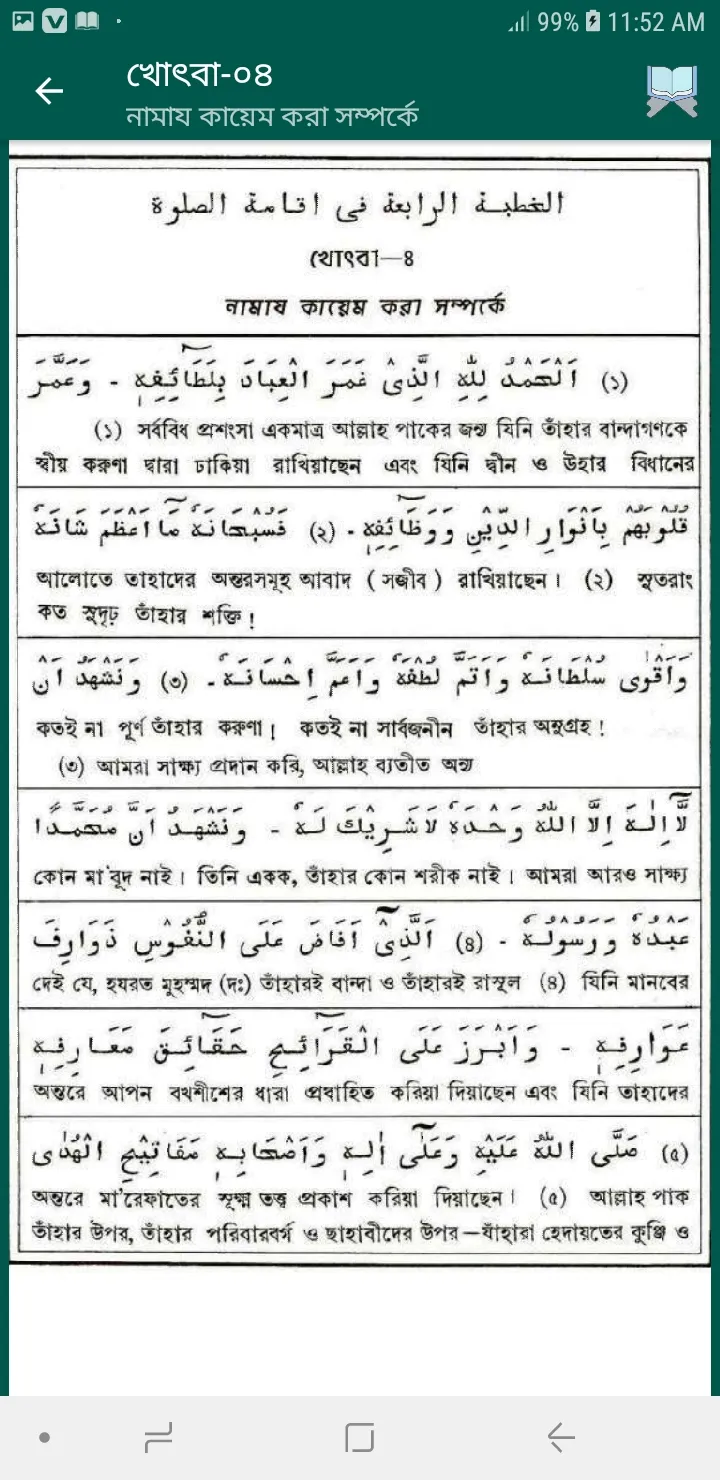 99% 11:52 AM
খোৎবা-০৪
নামায কায়েম করা সম্পর্কে
الخطبة الرابعة فى اقامة الصلوة
খোৎবা—৪
নামায কায়েম করা সম্পর্কে
(১) اَلْحَمْدُ لِلّٰهِ الَّذِىْ غَمَرَ الْعِبَادَ بِلَطَائِفِهٖ - وَعَمَّرَ
(১) সর্ববিধ প্রশংসা একমাত্র আল্লাহ পাকের জন্য যিনি তাঁহার বান্দাগণকে
স্বীয় করুণা দ্বারা ঢাকিয়া রাখিয়াছেন এবং যিনি দ্বীন ও উহার বিধানের
قُلُوبَهُمْ بِاَنْوَارِ الدِّيْنِ وَوَظَائِفِهٖ - (২) فَسُبْحَانَهٗ مَا اَعْظَمَ شَانَهٗ
আলোতে তাহাদের অন্তরসমূহ আবাদ ( সজীব ) রাখিয়াছেন। (২) সুতরাং
কত সুদৃঢ় তাঁহার শক্তি !
وَاَقْوٰى سُلْطَانَهٗ وَاَتَمَّ لُطْفَهٗ وَاَعَمَّ اِحْسَانَهٗ - (৩) وَنَشْهَدُ اَنْ
কতই না পূর্ণ তাঁহার করুণা ! কতই না সার্বজনীন তাঁহার অনুগ্রহ !
(৩) আমরা সাক্ষ্য প্রদান করি, আল্লাহ ব্যতীত অন্য
لَّا اِلٰهَ اِلَّا اللّٰهُ وَحْدَهٗ لَا شَرِيْكَ لَهٗ - وَنَشْهَدُ اَنَّ مُحَمَّدًا
কোন মা'বূদ নাই। তিনি একক, তাঁহার কোন শরীক নাই। আমরা আরও সাক্ষ্য
عَبْدُهٗ وَرَسُولُهٗ - (৪) اَلَّذِىْ اَفَاضَ عَلَى النُّفُوْسِ ذَوَارِفَ
দেই যে, হযরত মুহম্মদ (দঃ) তাঁহারই বান্দা ও তাঁহারই রাসূল (৪) যিনি মানবের
عَوَارِفِهٖ - وَاَبْرَزَ عَلَى الْقَرَائِحِ حَقَائِقَ مَعَارِفِهٖ
অন্তরে আপন বখশীশের ধারা প্রবাহিত করিয়া দিয়াছেন এবং যিনি তাহাদের
(৫) صَلَّى اللّٰهُ عَلَيْهِ وَعَلٰٓى اٰلِهٖ وَاَصْحَابِهٖ مَفَاتِيْحِ الْهُدٰى
অন্তরে মা'রেফাতের সূক্ষ্ম তত্ত্ব প্রকাশ করিয়া দিয়াছেন। (৫) আল্লাহ পাক
তাঁহার উপর, তাঁহার পরিবারবর্গ ও ছাহাবীদের উপর—যাঁহারা হেদায়তের কুঞ্জি ও